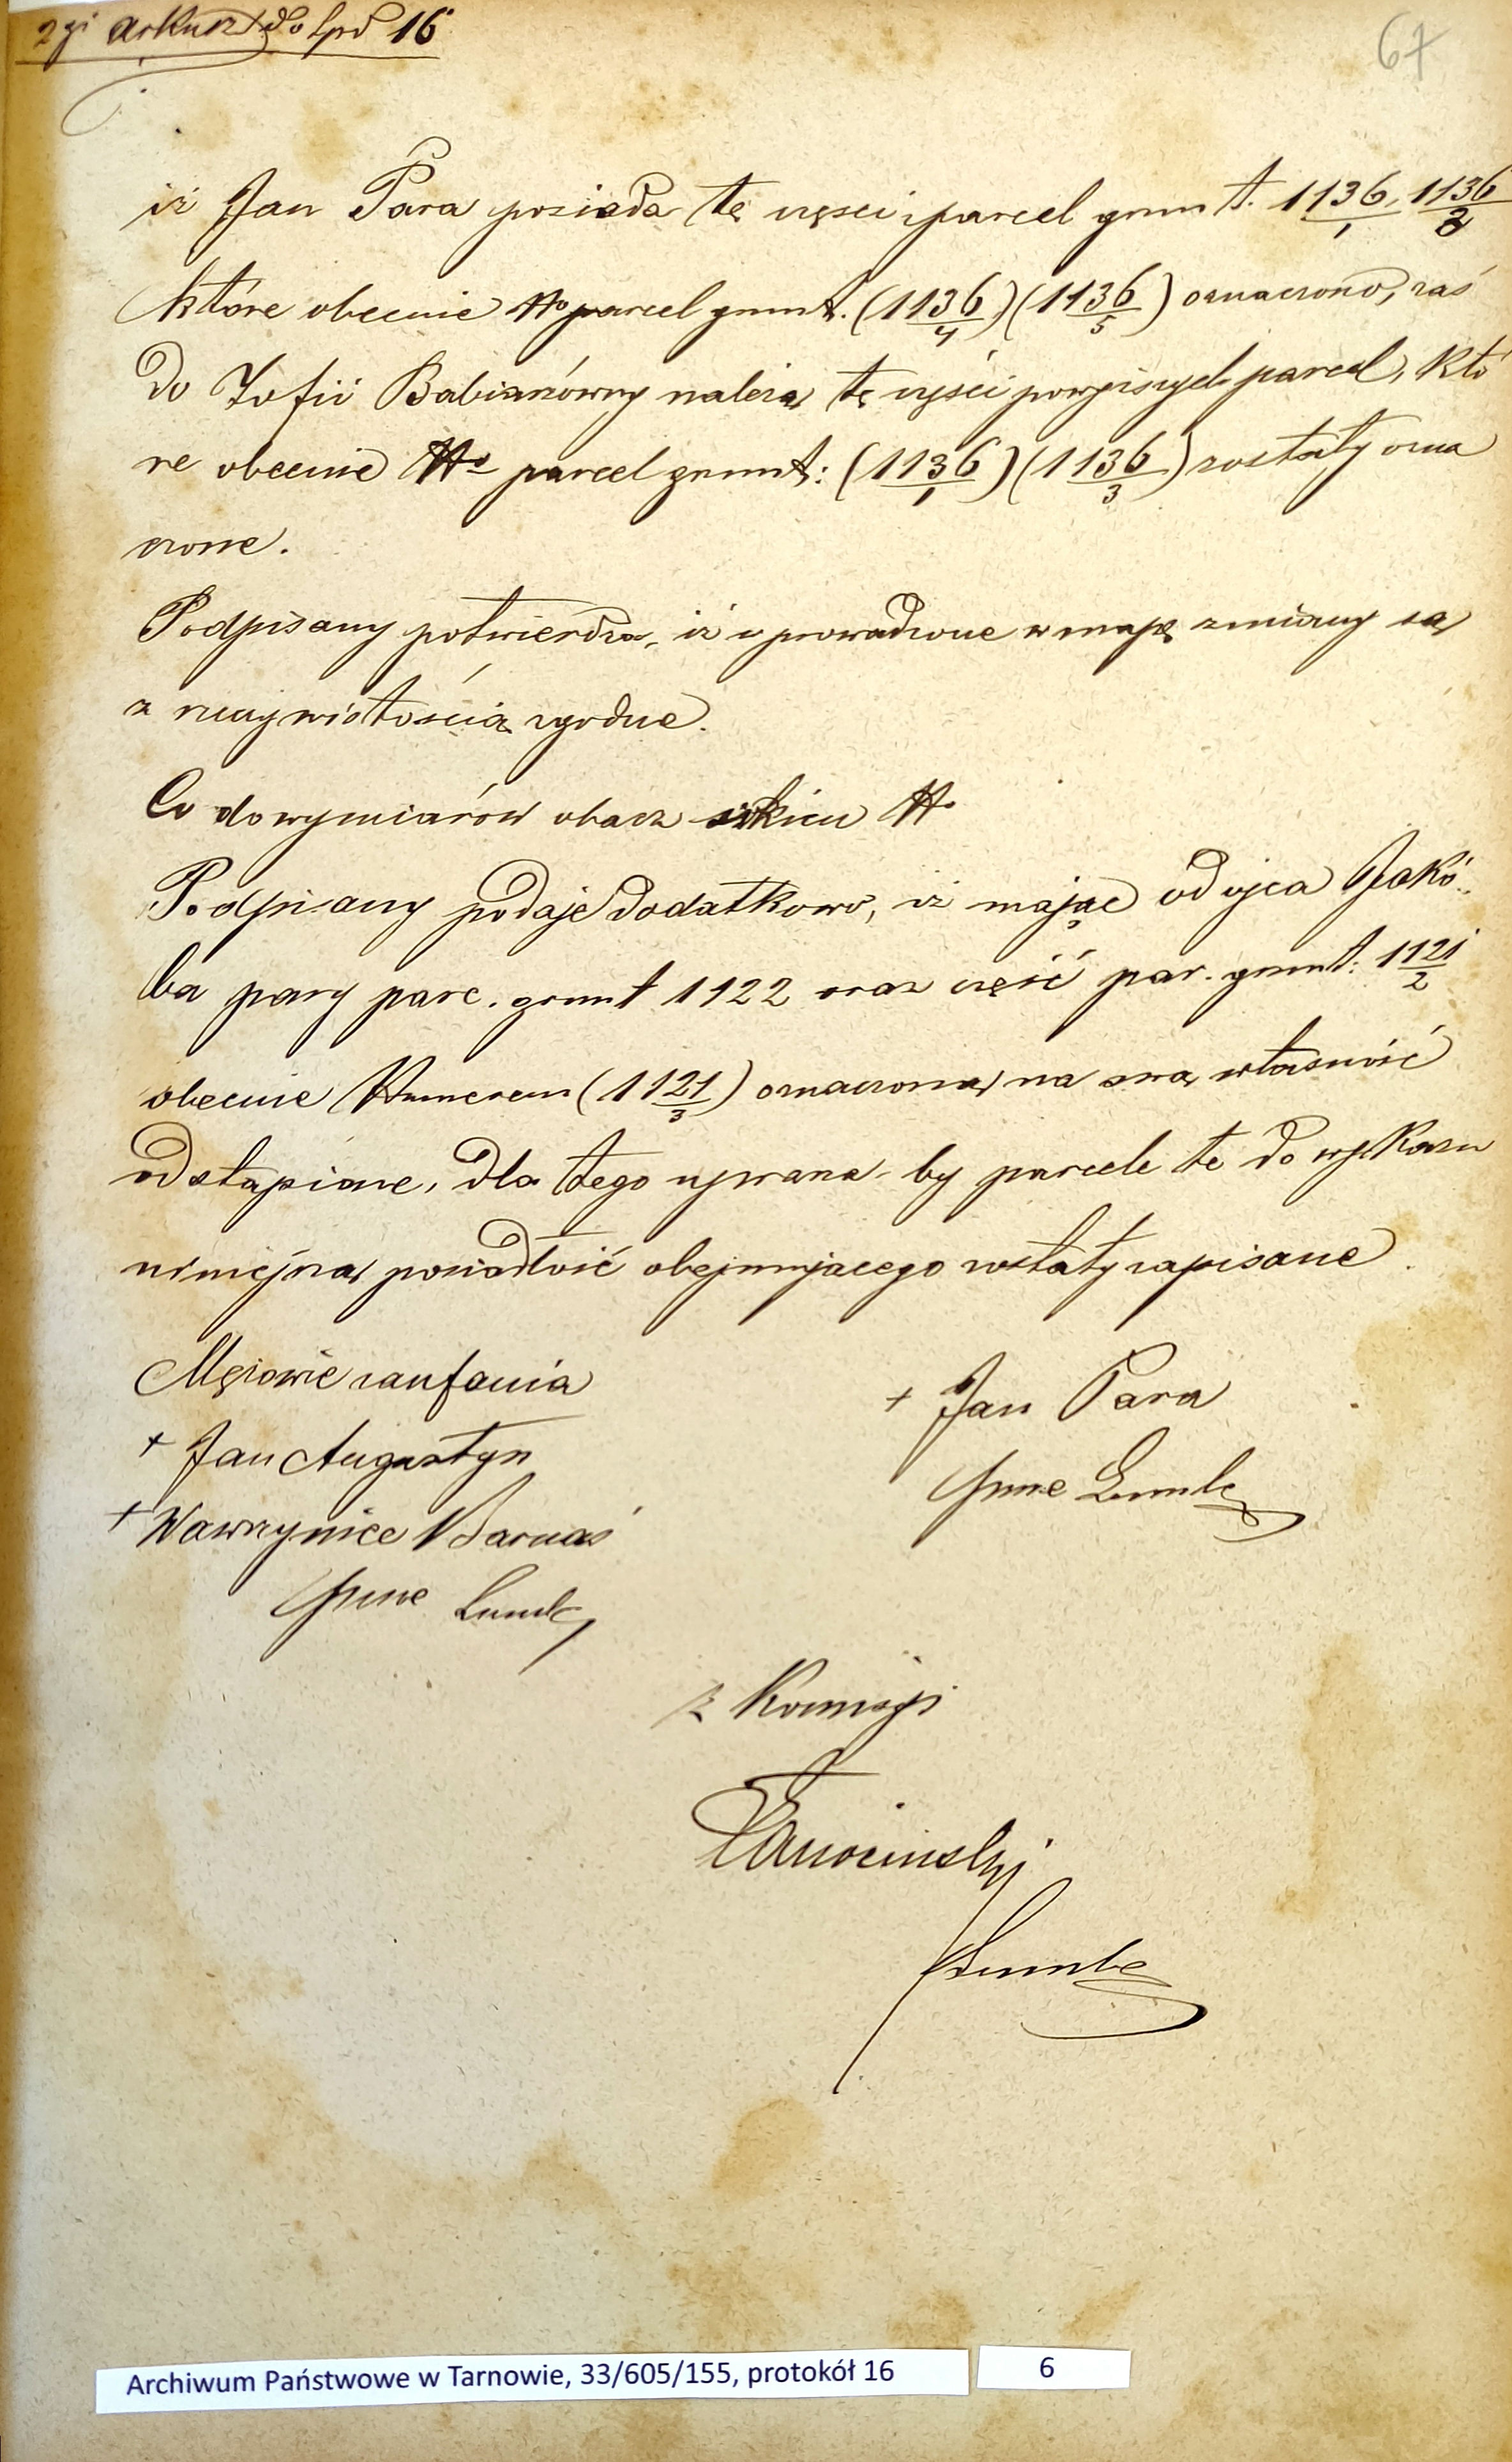 2gi arkusz do lpd 16
67
iż Jan Para posiada tę części parcel grunt. 1136/1, 1136/2
które obecnie No parcel grunt. (1136/4) (1136/5) oznaczono, zaś
do Zofii Babianówny należą tę części powyższych parcel, któ
re obecnie No parcel grunt: (1136/1) (1136/3) zostały ozna
czone.
Podpisany potwierdza, iż uprowadzone w mapę zmiany są
z rzeczywistością zgodne.
Co do wymiarów obacz szkicu No
Podpisany podaje dodatkowo, iż mając od ojca Jakó-
ba pary parc. grunt 1122 oraz część par. grunt: 1121/2
obecnie Numerem (1121/3) oznaczoną na swą własność
odstąpione, dla tego uprasza by parcele te do wykazu
niniejszą posiadłość obejmującego zostały zapisane.
Mężowie zaufania
+ Jan Para
+ Jan Augustyn
+ Wawrzyniec Barnaś
z Komisyi